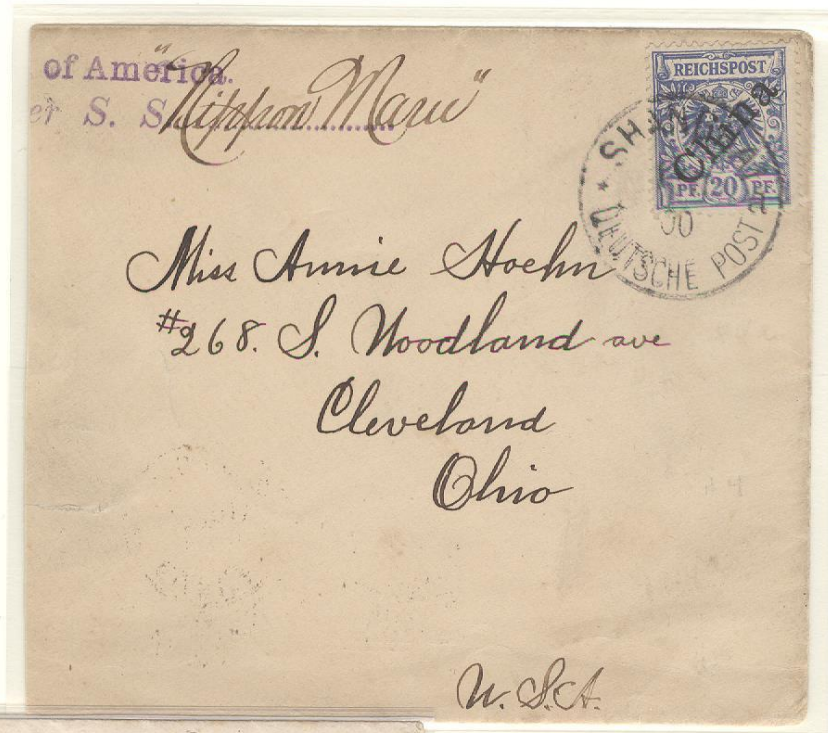 of America.
er S. S. "Nippon Maru"
REICHSPOST
China
PF. 20 PF.
SHANGHAI
00
* DEUTSCHE POST a
Miss Annie Hoehn
#268. S. Woodland ave
Cleveland
Ohio
U. S. A.